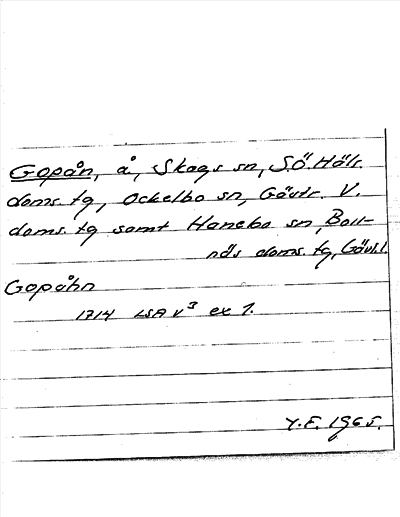 Gopån, å, Skogs sn, S.Ö. Häls.
doms. tg, Ockelbo sn, Gästr. V.
doms. tg samt Hanebo sn, Boll-
näs doms. tg, Gävl.l.
Gopåhn
1714 LSA V³ ex 1.
Y.F. 1965.